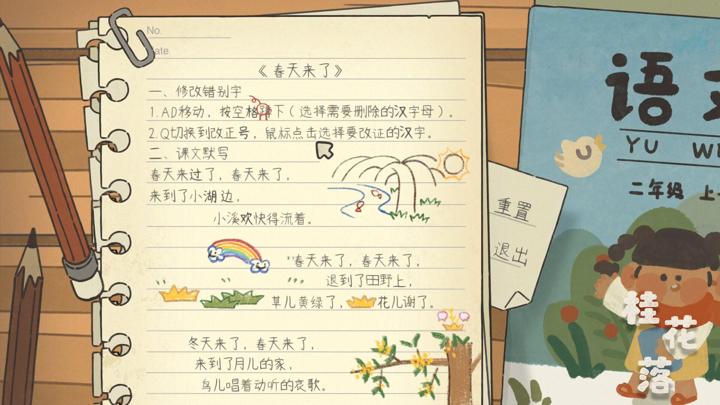 No.
ate
《春天来了》
一、修改错别字
1.AD移动，按空格下（选择需要删除的汉字母）。
2.Q切换到改正号，鼠标点击选择要改正的汉字。
二、课文默写
春天来过了，春天来了，
来到了小湖边，
小溪欢快得流着。
"春天来了，春天来了，
退到了田野上，
草儿黄绿了，花儿谢了。
冬天来了，春天来了，
来到了月儿的家，
鸟儿唱着动听的哀歌。
重置
退出
语文
YU WE
二年级 上
桂花落